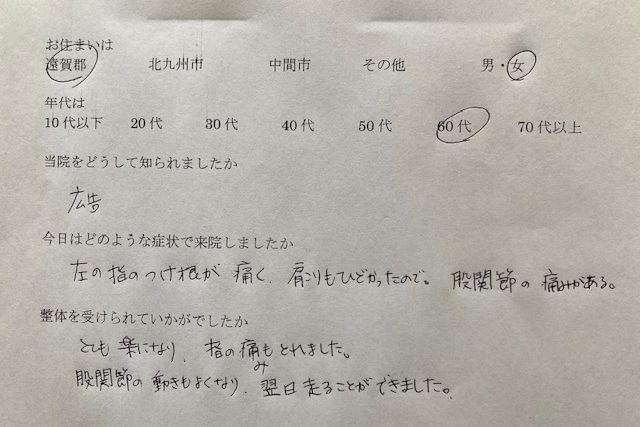 お住まいは
遠賀郡 北九州市 中間市 その他 男・女
年代は
10代以下 20代 30代 40代 50代 60代 70代以上
当院をどうして知られましたか
広告
今日はどのような症状で来院しましたか
左の指のつけ根が痛く、肩こりもひどかったので。股関節の痛みがある。
整体を受けられていかがでしたか
とても楽になり、指の痛みもとれました。
股関節の動きもよくなり、翌日走ることができました。